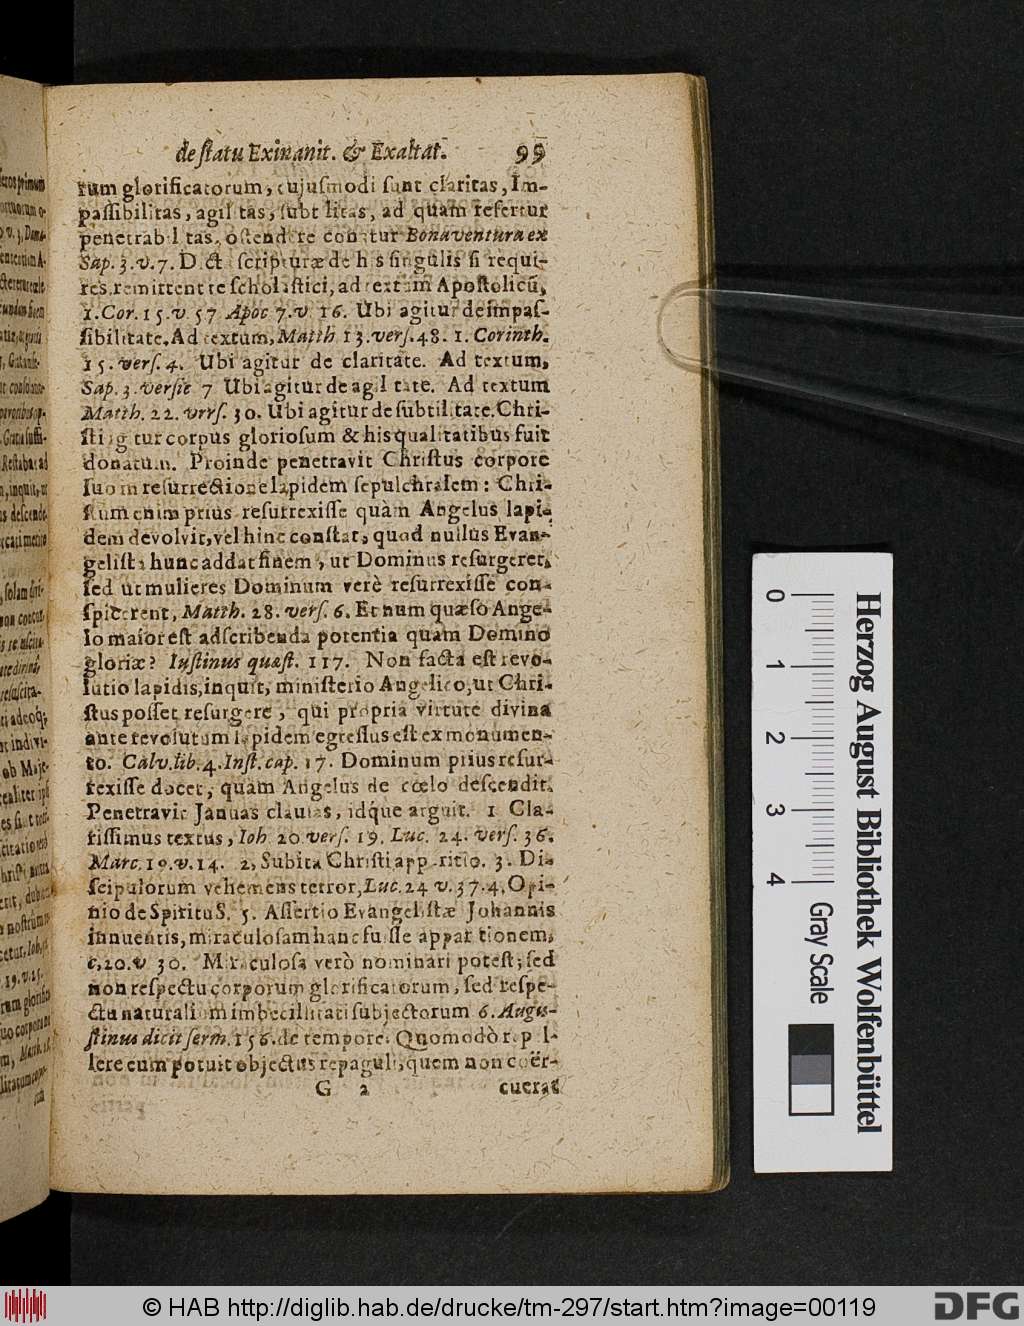 de ſtatu Exinanit. & Exaltat. 99
tum glorificatorum, cujuſmodi ſunt claritas, Im-
paſſibilitas, agil tas, ſubt litas, ad quam refertur
penetrab l tas, oſtend re con tur Bonaventura ex
Sap. 3. v. 7. D ct ſcripturæ de h s ſingulis ſi requi-
res, remittent te ſcholaſtici, ad textum Apoſtolicũ,
1. Cor. 15. v 57 Apoc 7. v 16. Ubi agitur de impaſ-
ſibilitate. Ad textum, Matth 13. verſ. 48. 1. Corinth.
15. verſ. 4. Ubi agitur de claritate. Ad textum,
Sap. 3. verſic 7 Ubi agitur de agil tate. Ad textum
Matth. 22. vrrſ. 30. Ubi agitur de ſubtilitate. Chri-
ſti ig tur corpus glorioſum & his qualitatibus fuit
donatum. Proinde penetravit Chriſtus corpore
ſuo in reſurrectione lapidem ſepulchralem: Chri-
ſtum enim prius reſurrexiſſe quàm Angelus lapi-
dem devolvit, vel hinc conſtat, quod nullus Evan-
geliſta hunc addat finem, ut Dominus reſurgeret,
ſed ut mulieres Dominum verè reſurrexiſſe con-
ſpicerent, Matth. 28. verſ. 6. Et num quæſo Ange-
lo maior eſt adſcribenda potentia quam Domino
gloriæ? Iuſtinus quæſt. 117. Non facta eſt revo-
lutio lapidis, inquit, miniſterio Angelico, ut Chri-
ſtus poſſet reſurgere, qui propria virtute divina
ante revolutum lapidem egreſſus eſt ex monumen-
to. Calv. lib. 4. Inſt. cap. 17. Dominum prius reſur-
rexiſſe docet, quàm Angelus de cœlo deſcendit.
Penetravit Januas clauſas, idq́ue arguit. 1 Cla-
riſſimus textus, Ioh 20 verſ. 19. Luc. 24. verſ. 36.
Marc. 19. v. 14. 2, Subita Chriſti app ritio. 3. Di-
ſcipulorum vehemens terror, Luc. 24 v. 37. 4, Opi-
nio de Spiritu S. 5. Aſſertio Evangeliſtæ Johannis
innuentis, miraculoſam hanc fuiſſe appar tionem,
c, 20. v 30. Miraculoſa verò nominari poteſt; ſed
non reſpectu corporum glorificatorum, ſed reſpe-
ctu naturali m imbecillitati ſubjectorum 6. Augu-
ſtinus dicit ſerm. 156. de tempore. Quomodò rep l-
lere eum potuit objectus repaguli, quem non coër-
G 2 cuerat
0 1 2 3 4
Gray Scale
Herzog August Bibliothek Wolfenbüttel
© HAB http://diglib.hab.de/drucke/tm-297/start.htm?image=00119
DFG